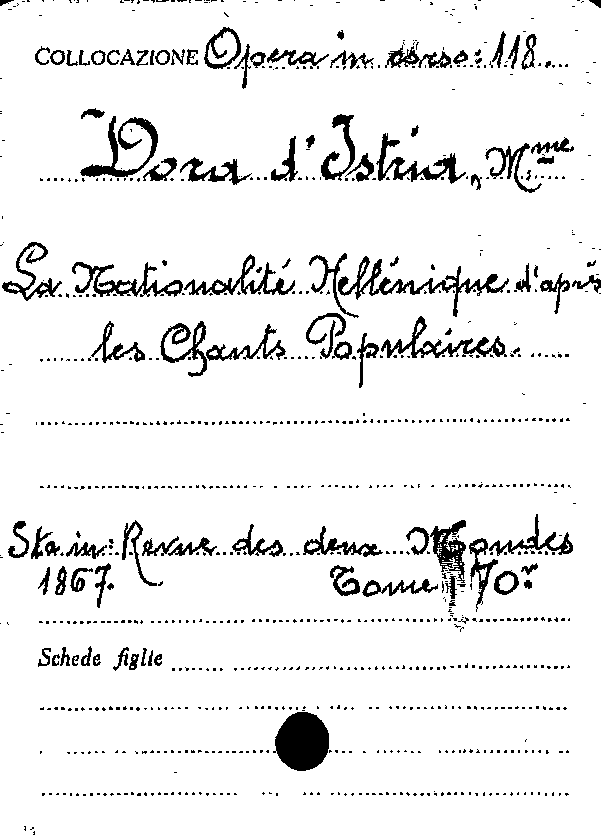 COLLOCAZIONE Opera in corso: 118.
Dora d'Istria, Mme
La Nationalité Hellénique d'après
les Chants Populaires.
Sta in: Revue des deux Mondes
1867. Tome 70r
Schede figlie